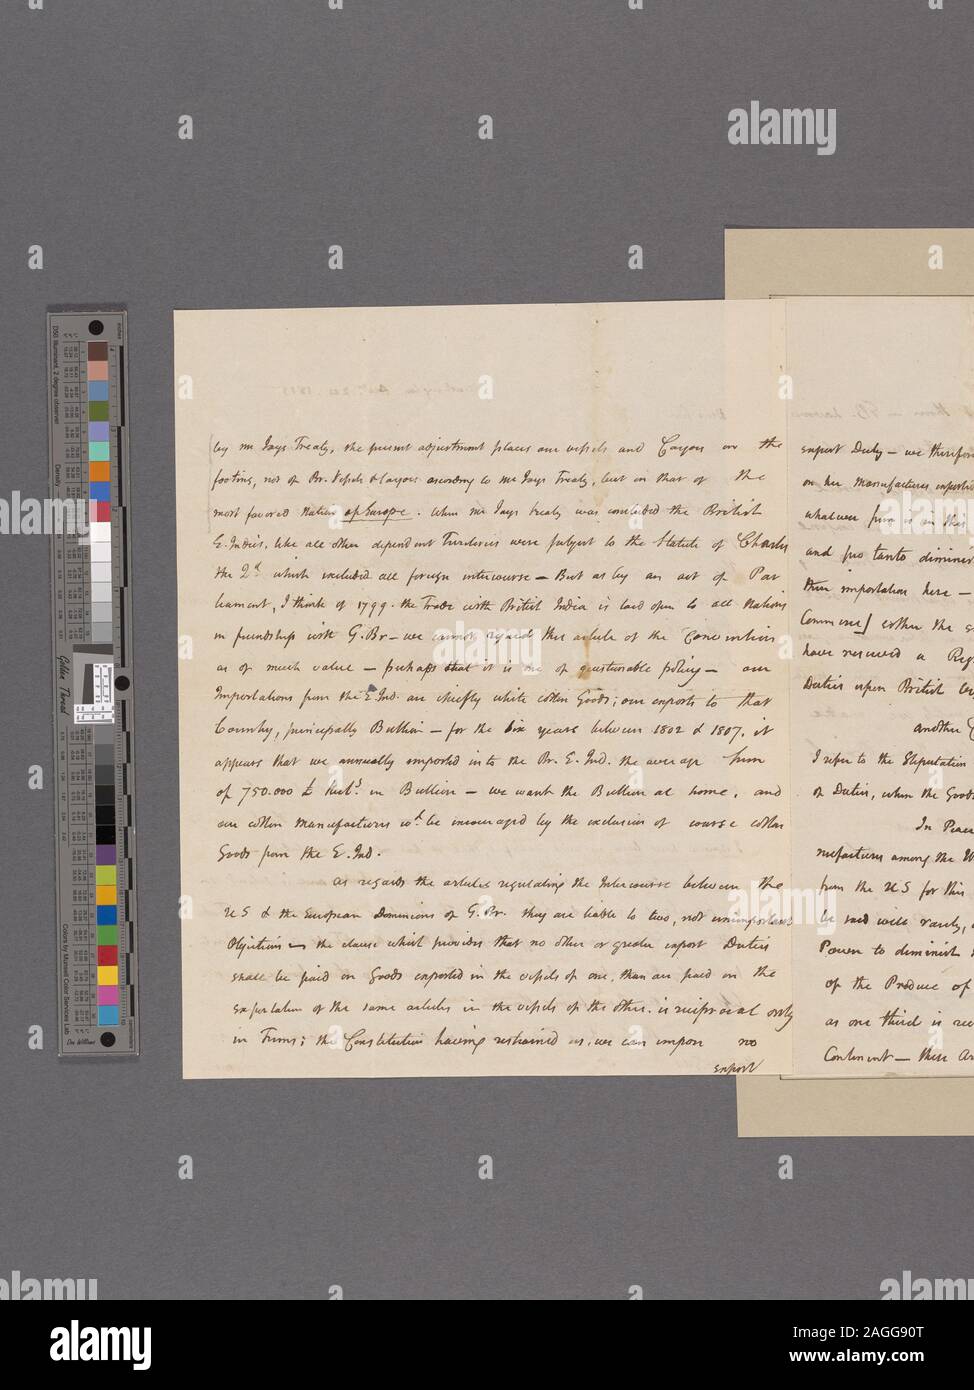 by Mr Jays Treaty, the present adjustment places our vessels and Cargoes on the
footing, not of Br. Vessels & Cargoes according to Mr Jays Treaty, but on that of the
most favored Nation of Europe. When Mr Jays treaty was concluded the British
E. Indies, like all other dependent Territories were subject to the Statute of Charles
the 2d which excluded all foreign intercourse — But as by an act of Par
liament, I think of 1799. the Trade with British India is laid open to all Nations
in friendship with G. Br — we cannot regard this article of the Convention
as of much value — perhaps that it is one of questionable policy — our
Importations from the E. Ind. are chiefly white cotton Goods; our exports to that
Country, principally Bullion — for the six years between 1802 & 1807, it
appears that we annually imported into the Br. E. Ind. the average sum
of 750.000 £ in Bullion — we want the Bullion at home, and
our cotton manufactures wd be encouraged by the exclusion of course cotton
Goods from the E. Ind.
as regards the articles regulating the Intercourse between the
US & the European Dominions of G. Br. they are liable to two, not unimportant
Objections — the clause which provides that no other or greater export Duties
shall be paid on Goods exported in the vessels of one, than are paid on the
exportation of the same articles in the vessels of the other. is reciprocal only
in Terms; the Constitution having restrained us, we can impose no
export
export Duty — we therefore
on her manufactures exported
whatever sum is in this
and pro tanto diminish
their importation here —
Commerce] either the
have reserved a
Duties upon British
another
I refer to the Stipulation
of Duties, when the Goods
In Peace
nufactures among the
from the US for this
be said will rarely,
Power to diminish
of the Produce of
as one third is
Continent — these
inches
D50 Illuminant, 2 degree observer
Density
Golden Thread
Colors by Munsell Color Services Lab
centimeters
alamy
Image ID: 2AGG90T
www.alamy.com